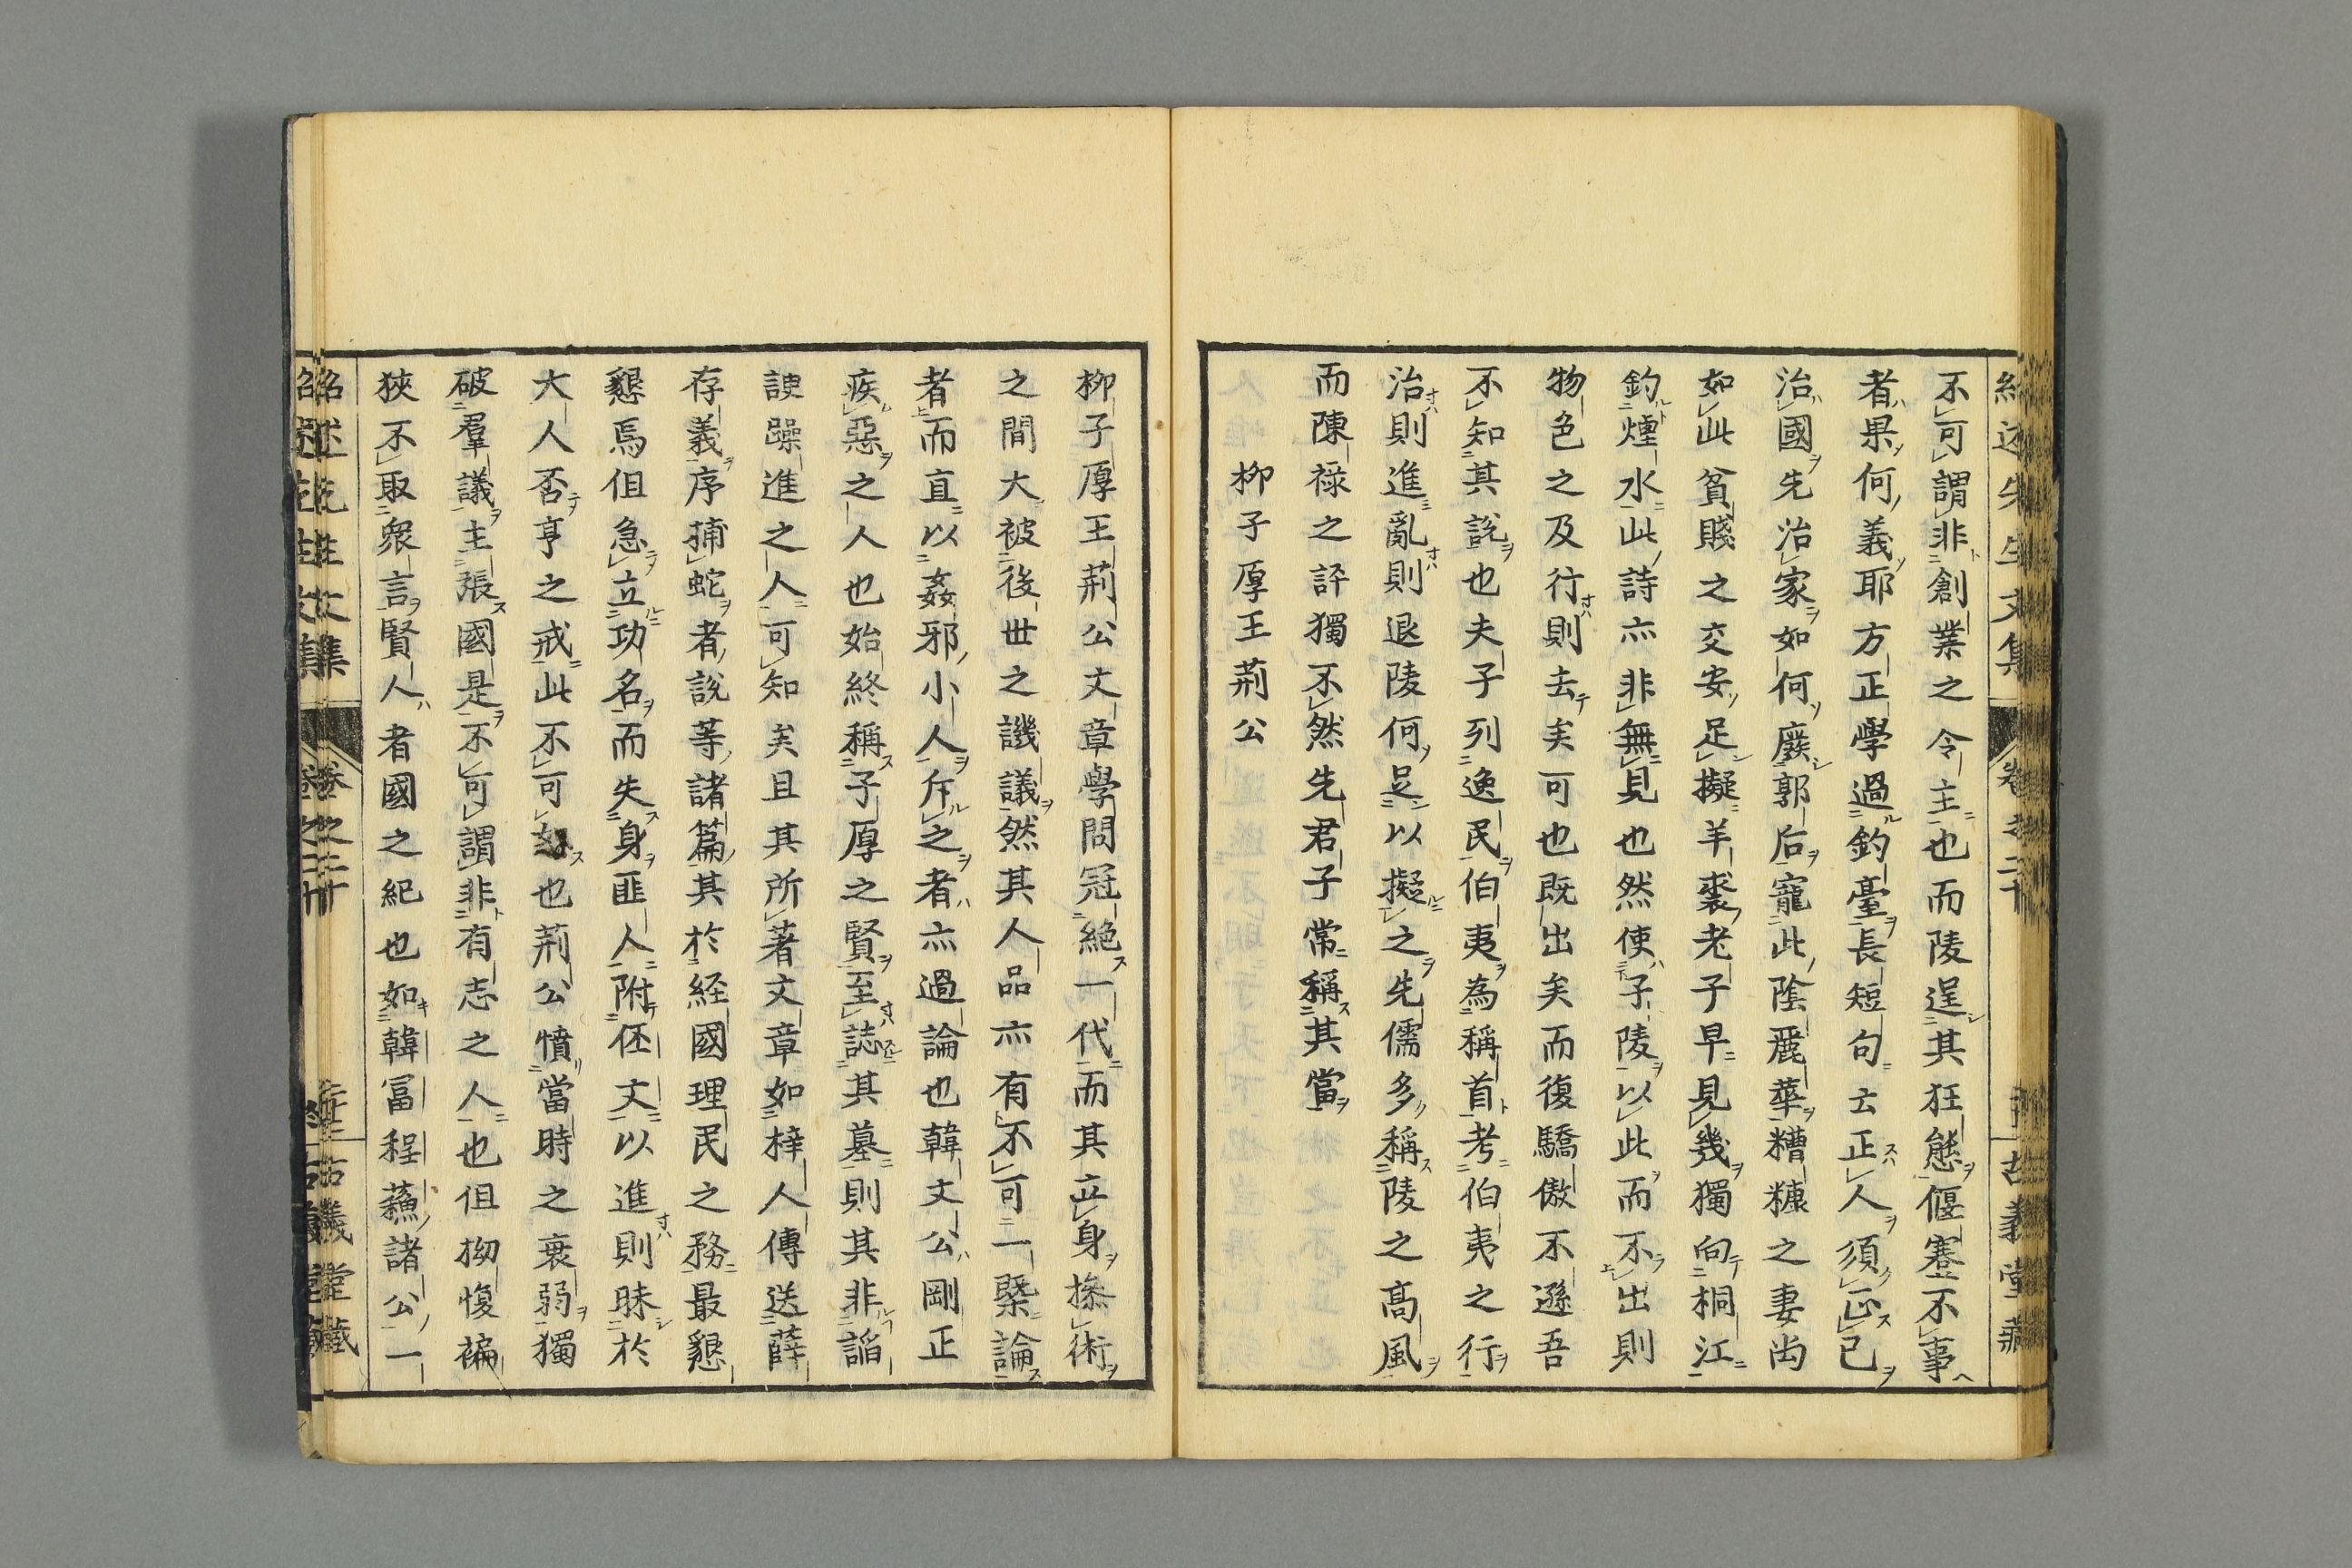 不可謂非創業之令主也而陵逞其狂態偃蹇不事
者果何義耶方正學過釣臺長短句云正人須正己
治國先治家如何廢郭后寵此陰麗華糟糠之妻尚
如此貧賤之交安足擬羊裘老子早見幾獨向桐江
釣煙水此詩亦非無見也然使子陵以此而不出則
物色之及行則去矣可也既出矣而復驕傲不遜吾
不知其說也夫子列逸民伯夷為稱首考伯夷之行
治則進亂則退陵何足以擬之先儒多稱陵之高風
而陳祿之評獨不然先君子常稱其當
柳子厚王荊公
柳子厚王荊公文章學問冠絕一代而其立身操術
之間大被後世之譏議然其人品亦有不可一槩論
者而直以姦邪小人斥之者亦過論也韓文公剛正
疾惡之人也始終稱子厚之賢至誌其墓則其非諂
諛躁進之人可知矣且其所著文章如梓人傳送薛
存義序捕蛇者說等諸篇其於経國理民之務最懇
懇焉但急立功名而失身匪人附伾文以進則昧於
大人否亨之戒此不可如也荊公憤當時之衰弱獨
破羣議主張國是不可謂非有志之人也但拗愎褊
狹不取眾言賢人者國之紀也如韓富程蘓諸公一
紹述先生文集 卷之二十 古義堂藏